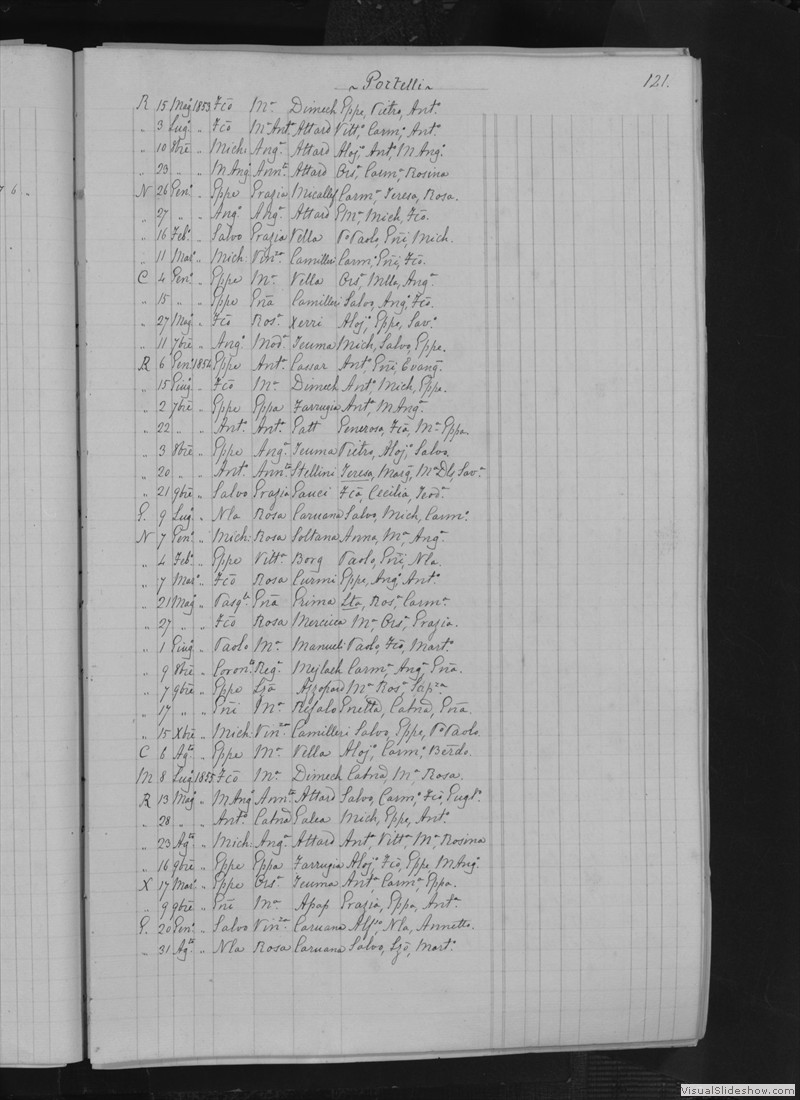 ~ Portelli ~ 121.
R 15 Mag. 1853 Fcō Mª Dimech Eppe, Pietro, Antº
„ 3 Lugº „ Fcō Mª Antª Attard Vittª, Carmº, Antº
„ 10 8bre „ Mich: Angª Attard Alojº, Antª, M Angº
„ 23 „ „ M Angº Annta Attard Orsª, Carmª, Rosina
N 26 Genº „ Eppe Grazia Micallef Carmª, Teresa, Rosa.
„ 27 „ „ Angº Angª Attard Mich, Fcō.
„ 16 Febº „ Salvo Grazia Vella Pº Paolo, Gñi, Mich.
„ 11 Marº „ Mich: Vinza Camilleri Carmº, Gñi, Fcō.
C 4 Genº „ Eppe Mª Vella Orsª, Mlla, Angª
„ 15 „ „ Eppe Gña Camilleri Salvo, Angº, Fcō.
„ 27 Magº „ Fcō Rosª Xerri Alojº, Eppe, Savº.
„ 11 7bre „ Angº Modª Teuma Mich, Salvo, Eppe.
R 6 Genº 1854 Eppe Antª Cassar Antº, Gñi, Evangª
„ 15 Giugº „ Fcō Mª Dimech Antº, Mich, Eppe.
„ 2 7bre „ Eppe Eppa Farrugia Antª, M Angª
„ 22 „ „ Antº Antª Gatt Generosa, Fcā, Mª Eppa.
„ 3 8bre „ Eppe Angª Teuma Pietro, Alojº, Salvo.
„ 20 „ „ Antº Annta Stellini Teresa, Margª, Mª Dlº, Savª
„ 21 9bre „ Salvo Grazia Gauci Fcā, Cecilia, Teodª
G. 9 Lugº „ Nla Rosa Caruana Salvo, Mich, Carmº.
N 7 Genº „ Mich: Rosa Soltana Anna, Mª, Angª
„ 4 Febº „ Eppe Vittª Borg Paolo, Gñi, Nla.
„ 7 Marº „ Fcō Rosa Curmi Eppe, Angº, Antº
„ 21 Magº „ Pasqle Gña Grima Lta, Rosª, Carmª
„ 27 „ „ Fcō Rosa Mercieca Mª, Orsª, Grazia.
„ 1 Giugº „ Paolo Mª Manueli Paolo, Fcō, Martº
„ 9 8bre „ Coronto Regª Mejlach Carmª, Angª, Gña.
„ 7 9bre „ Eppe Lza Azzopard Mª, Rosª, Scipza
„ 17 „ „ Gñi Mª Refalo Gnetta, Catnā, Gña.
„ 15 Xbre „ Mich: Vinza Camilleri Salvo, Eppe, Pº Paolo.
C 6 Agto „ Eppe Mª Vella Alojº, Carmº, Berdo.
M 8 Lugº 1855 Fcō Mª Dimech Catnā, Mª, Rosa.
R 13 Magº „ M Angº Annta Attard Salvo, Carmº, Fcō, Euglº.
„ 28 „ „ Antº Catnā Galea Mich, Eppe, Antº
„ 23 Agto „ Mich: Angª Attard Antª, Vittª, Mª, Rosina
„ 16 9bre „ Eppe Eppa Farrugia Alojº, Fcō, Eppe, M Angº
X 17 Marº „ Eppe Orsª Teuma Antª, Carmª, Eppa.
„ 9 9bre „ Gñi Mª Apap Grazia, Eppa, Antª
G. 20 Genº „ Salvo Vinza Caruana Alfº, Nla, Annetto.
„ 31 Agto „ Nla Rosa Caruana Salvo, Lzō, Martº
VisualSlideshow.com